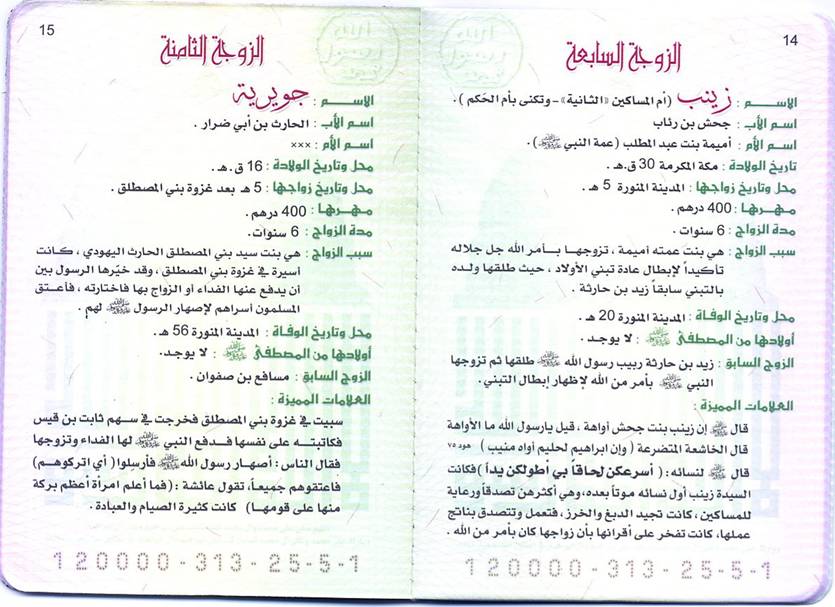 14
الزوجة السابعة
الاســـم : زينب (أم المساكين «الثانية» - وتكنى بأم الحَكم ) .
اسم الأب : جحش بن رئاب
اسم الأم : أميمة بنت عبد المطلب (عمة النبي ﷺ).
تاريخ الولادة : مكة المكرمة 30 ق.هـ .
محل وتاريخ زواجها : المدينة المنورة 5 هـ .
مهـرهـا : 400 درهم .
مدة الزواج : 6 سنوات .
سبب الزواج : هي بنت عمته أميمة ، تزوجهـا بـأمر الله جل جلاله
تأكيداً لإبطال عادة تبني الأولاد ، حيث طلقها ولده
بالتبني سابقاً زيد بن حارثة .
محل وتاريخ الوفاة : المدينة المنورة 20 هـ .
أولادها من المصطفى ﷺ : لا يوجد .
الزوج السابق : زيد بن حارثة ربيب رسول الله ﷺ طلقها ثم تزوجها
النبي ﷺ بأمر من الله لإظهار إبطال التبني.
العلامات المميزة :
قال ﷺ إن زينب بنت جحش أواهة ، قيل يارسول الله ما الأواهة
قال الخاشعة المتضرعة ( وإن ابراهيم لحليم أواه منيب ) هود ٧٥
قال ﷺ لنسائه : ( أسرعكن لحاقاً بي أطولكن يداً ) فكانت
السيدة زينب أول نسائه موتاً بعده، وهي أكثرهن تصدقاً ورعاية
للمساكين ، كانت تجيد الدبغ والخرز ، فتعمل وتتصدق بناتج
عملها، كانت تفخر على أقرانها بأن زواجها كان بأمر من الله .
120000-313-25-5-1
15
الزوجة الثامنة
الاســـم : جويرية
اسم الأب : الحارث بن أبي ضرار .
اسم الأم : ×××
محل وتاريخ الولادة : 16 ق .هـ .
محل وتاريخ زواجها : 5 هـ بعد غزوة بني المصطلق .
مهـرهـا : 400 درهم .
مدة الزواج : 6 سنوات.
سبب الزواج : هي بنت سيد بني المصطلق الحارث اليهودي ، كـانت
أسيرة في غزوة بني المصطلق ، وقد خيّرها الرسول بين
أن يدفع عنها الفداء أو الزواج بها فاختارته ، فـأعتـق
المسلمون أسراهم لإصهار الرسول ﷺ لهم .
محل وتاريخ الوفاة : المدينة المنورة 56 هـ .
أولادها من المصطفى ﷺ : لا يوجـد.
الزوج السابق : مسافع بن صفوان .
العلامات المميزة :
سبيت في غزوة بني المصطلق فخرجت في سهم ثابت بن قيس
فكاتبتـه على نفسها فـدفع النبي ﷺ لها الفداء وتزوجها
فقال الناس : أصهار رسول الله ﷺ فأرسِلوا( أي اتركوهم)
فاعتقوهم جميعاً، تقول عائشة : (فما أعلم امرأة أعظم بركة
منها على قومها) كانت كثيرة الصيام والعبادة .
120000-313-25-5-1